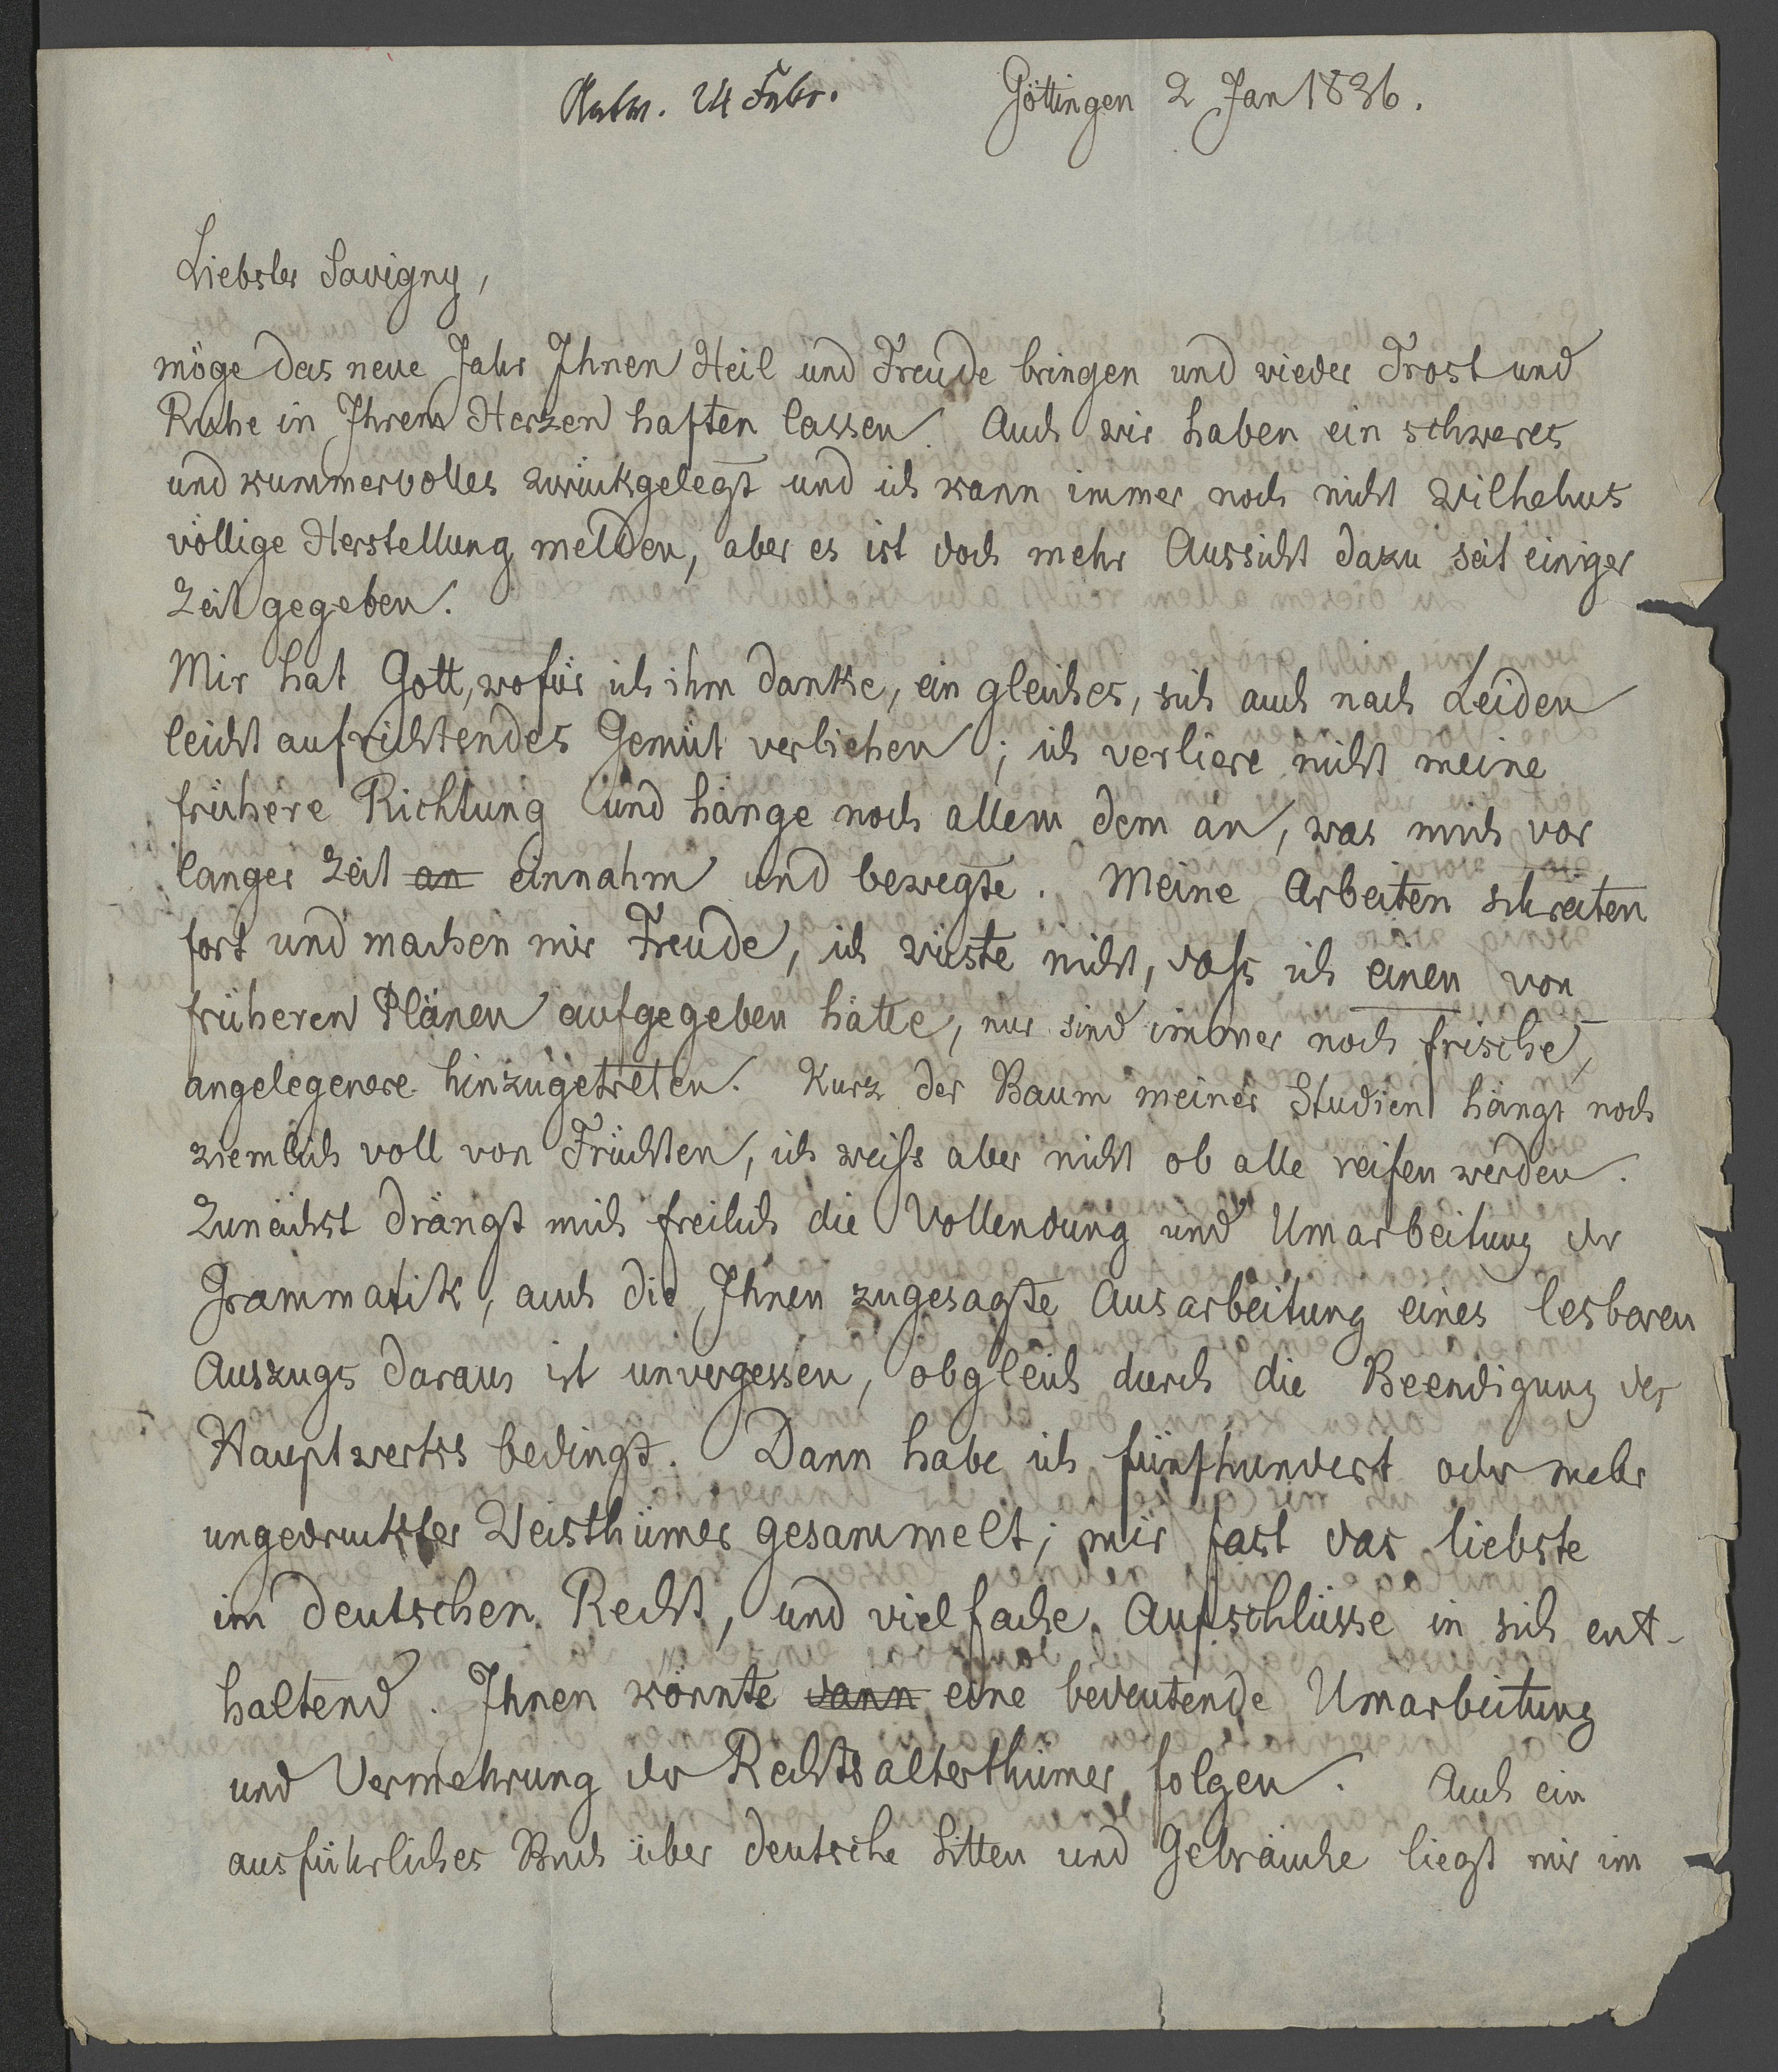 Antw. 24 Febr.
Göttingen 2 Jan 1836.
Liebster Savigny,
möge das neue Jahr Ihnen Heil und Freude bringen und wieder Trost und
Ruhe in Ihrem Herzen haften lassen. Auch wir haben ein schweres
und kummervolles zurückgelegt und ich kann immer noch nicht Wilhelms
völlige Herstellung melden, aber es ist doch mehr Aussicht dazu seit einiger
Zeit gegeben.
Mir hat Gott, wofür ich ihm danke, ein gleiches, sich auch nach Leiden
leicht aufrichtendes Gemüt verliehen; ich verliere nicht meine
frühere Richtung und hänge noch allem dem an, was mich vor
langer Zeit an einnahm und bewegte. Meine Arbeiten schreiten
fort und machen mir Freude, ich wüste nicht, dass ich einen von
früheren Plänen aufgegeben hätte, nur sind immer noch frische,
angelegenere hinzugetreten. Kurz der Baum meiner Studien hängt noch
ziemlich voll von Früchten, ich weiss aber nicht ob alle reifen werden.
Zunächst drängt mich freilich die Vollendung und Umarbeitung der
Grammatik, auch die Ihnen zugesagte Ausarbeitung eines lesbaren
Auszugs daraus ist unvergessen, obgleich durch die Beendigung des
Hauptwerks bedingt. Dann habe ich fünfhundert oder mehr
ungedruckter Weisthümer gesammelt; mir fast das liebste
im deutschen Recht, und vielfache Aufschlüsse in sich ent-
haltend. Ihnen könnte dann eine bedeutende Umarbeitung
und Vermehrung der Rechtsalterthümer folgen. Auch ein
ausführliches Buch über deutsche Sitten und Gebräuche liegt mir im